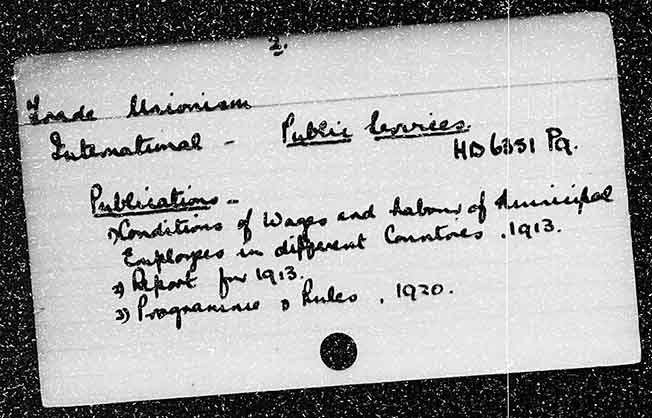 2.
Trade Unionism
International - Public Services
HD6331 Pq.
Publications -
1) Conditions of Wages and Labour of Municipal
Employees in different Countries. 1913.
2) Report for 1913.
3) Programme & Rules. 1920.